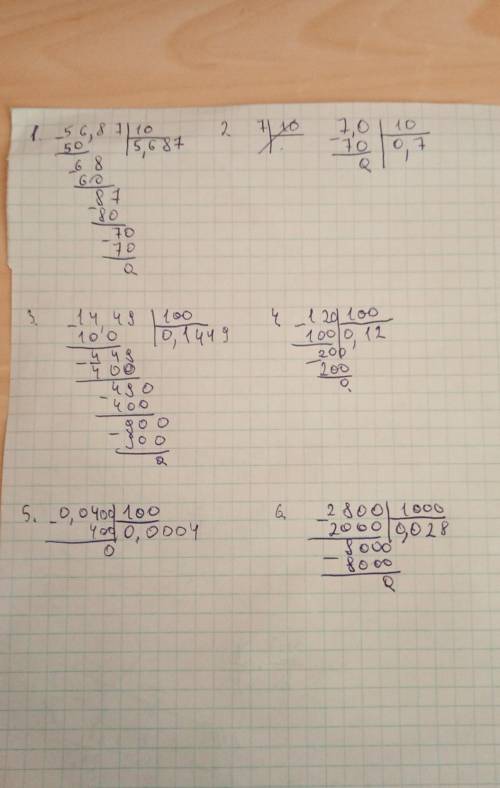 1. -56,87 | 10
50 | 5,687
-68
60
-87
80
-70
70
0
2. 7 | 10
-7,0 | 10
70 | 0,7
0
3. -14,49 | 100
10 0 | 0,1449
-449
400
-490
400
-900
900
0
4. -120 | 100
100 | 0,12
-200
200
0
5. -0,0400 | 100
400 | 0,0004
0
6. -2800 | 1000
2000 | 0,028
-8000
8000
0